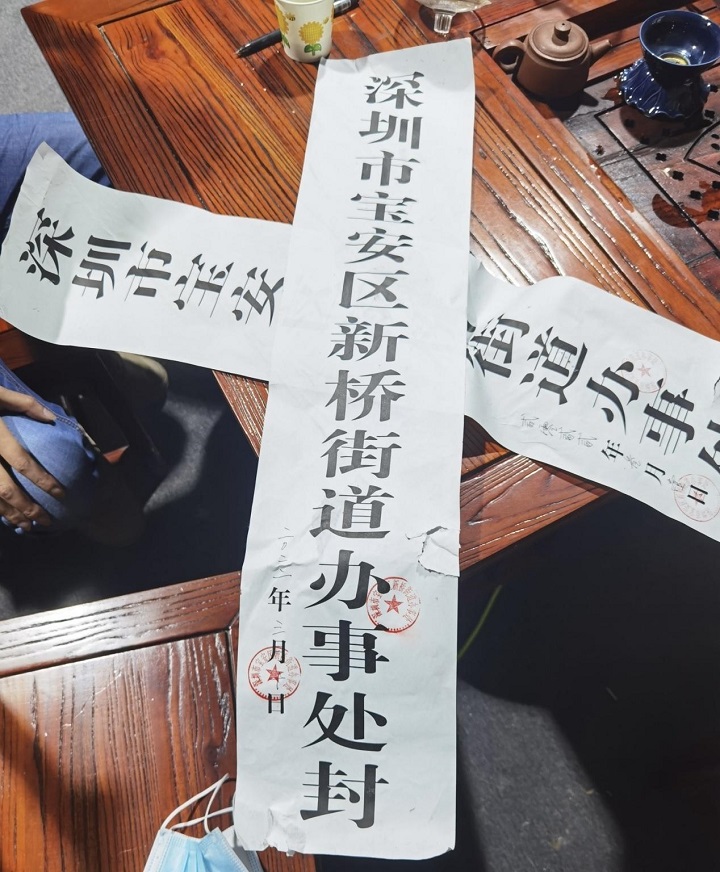 深圳市宝安区新桥街道办事处封
年 月 日
深圳市宝安
街道办事处
年 月 日